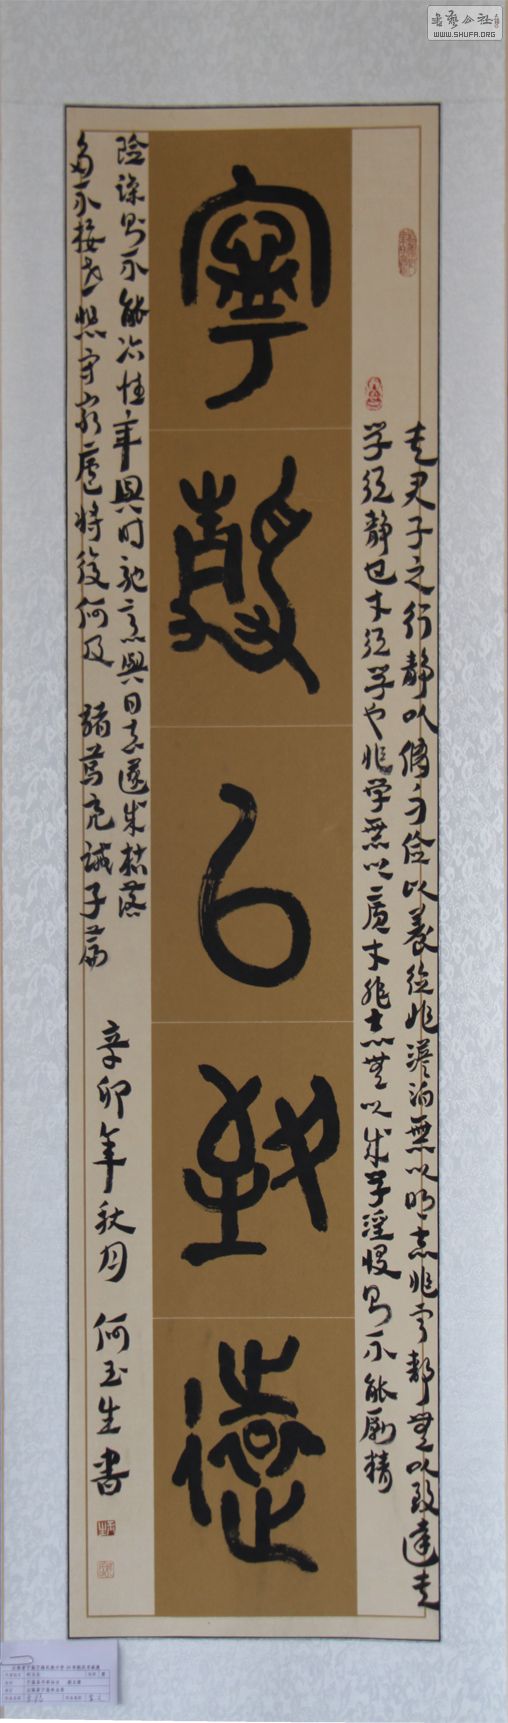 書藝公社
WWW.SHUFA.ORG
夫君子之行静以脩身俭以養德非澹泊無以明志非寧静無以致遠夫
学须静也才须学也非学無以廣才非志無以成学淫慢則不能励精
寧靜以致遠
险躁則不能冶性年與时馳意與日去遂成枯落
多不接世悲守穷廬将復何及 諸葛亮誡子篇
辛卯年秋月 何玉生書